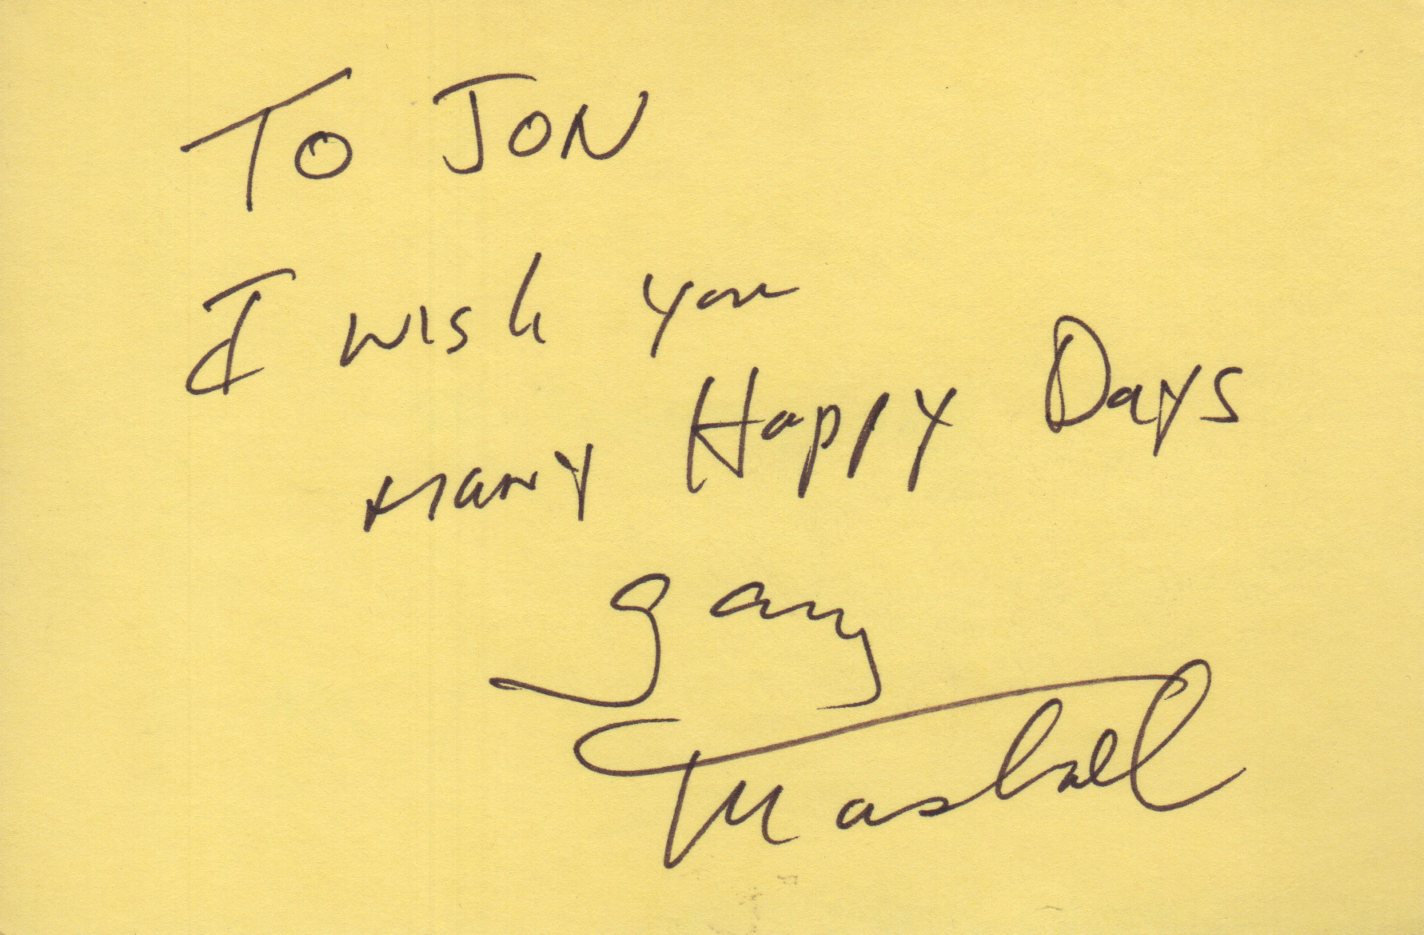 To JON
I wish you
many Happy Days
Garry
Marshall